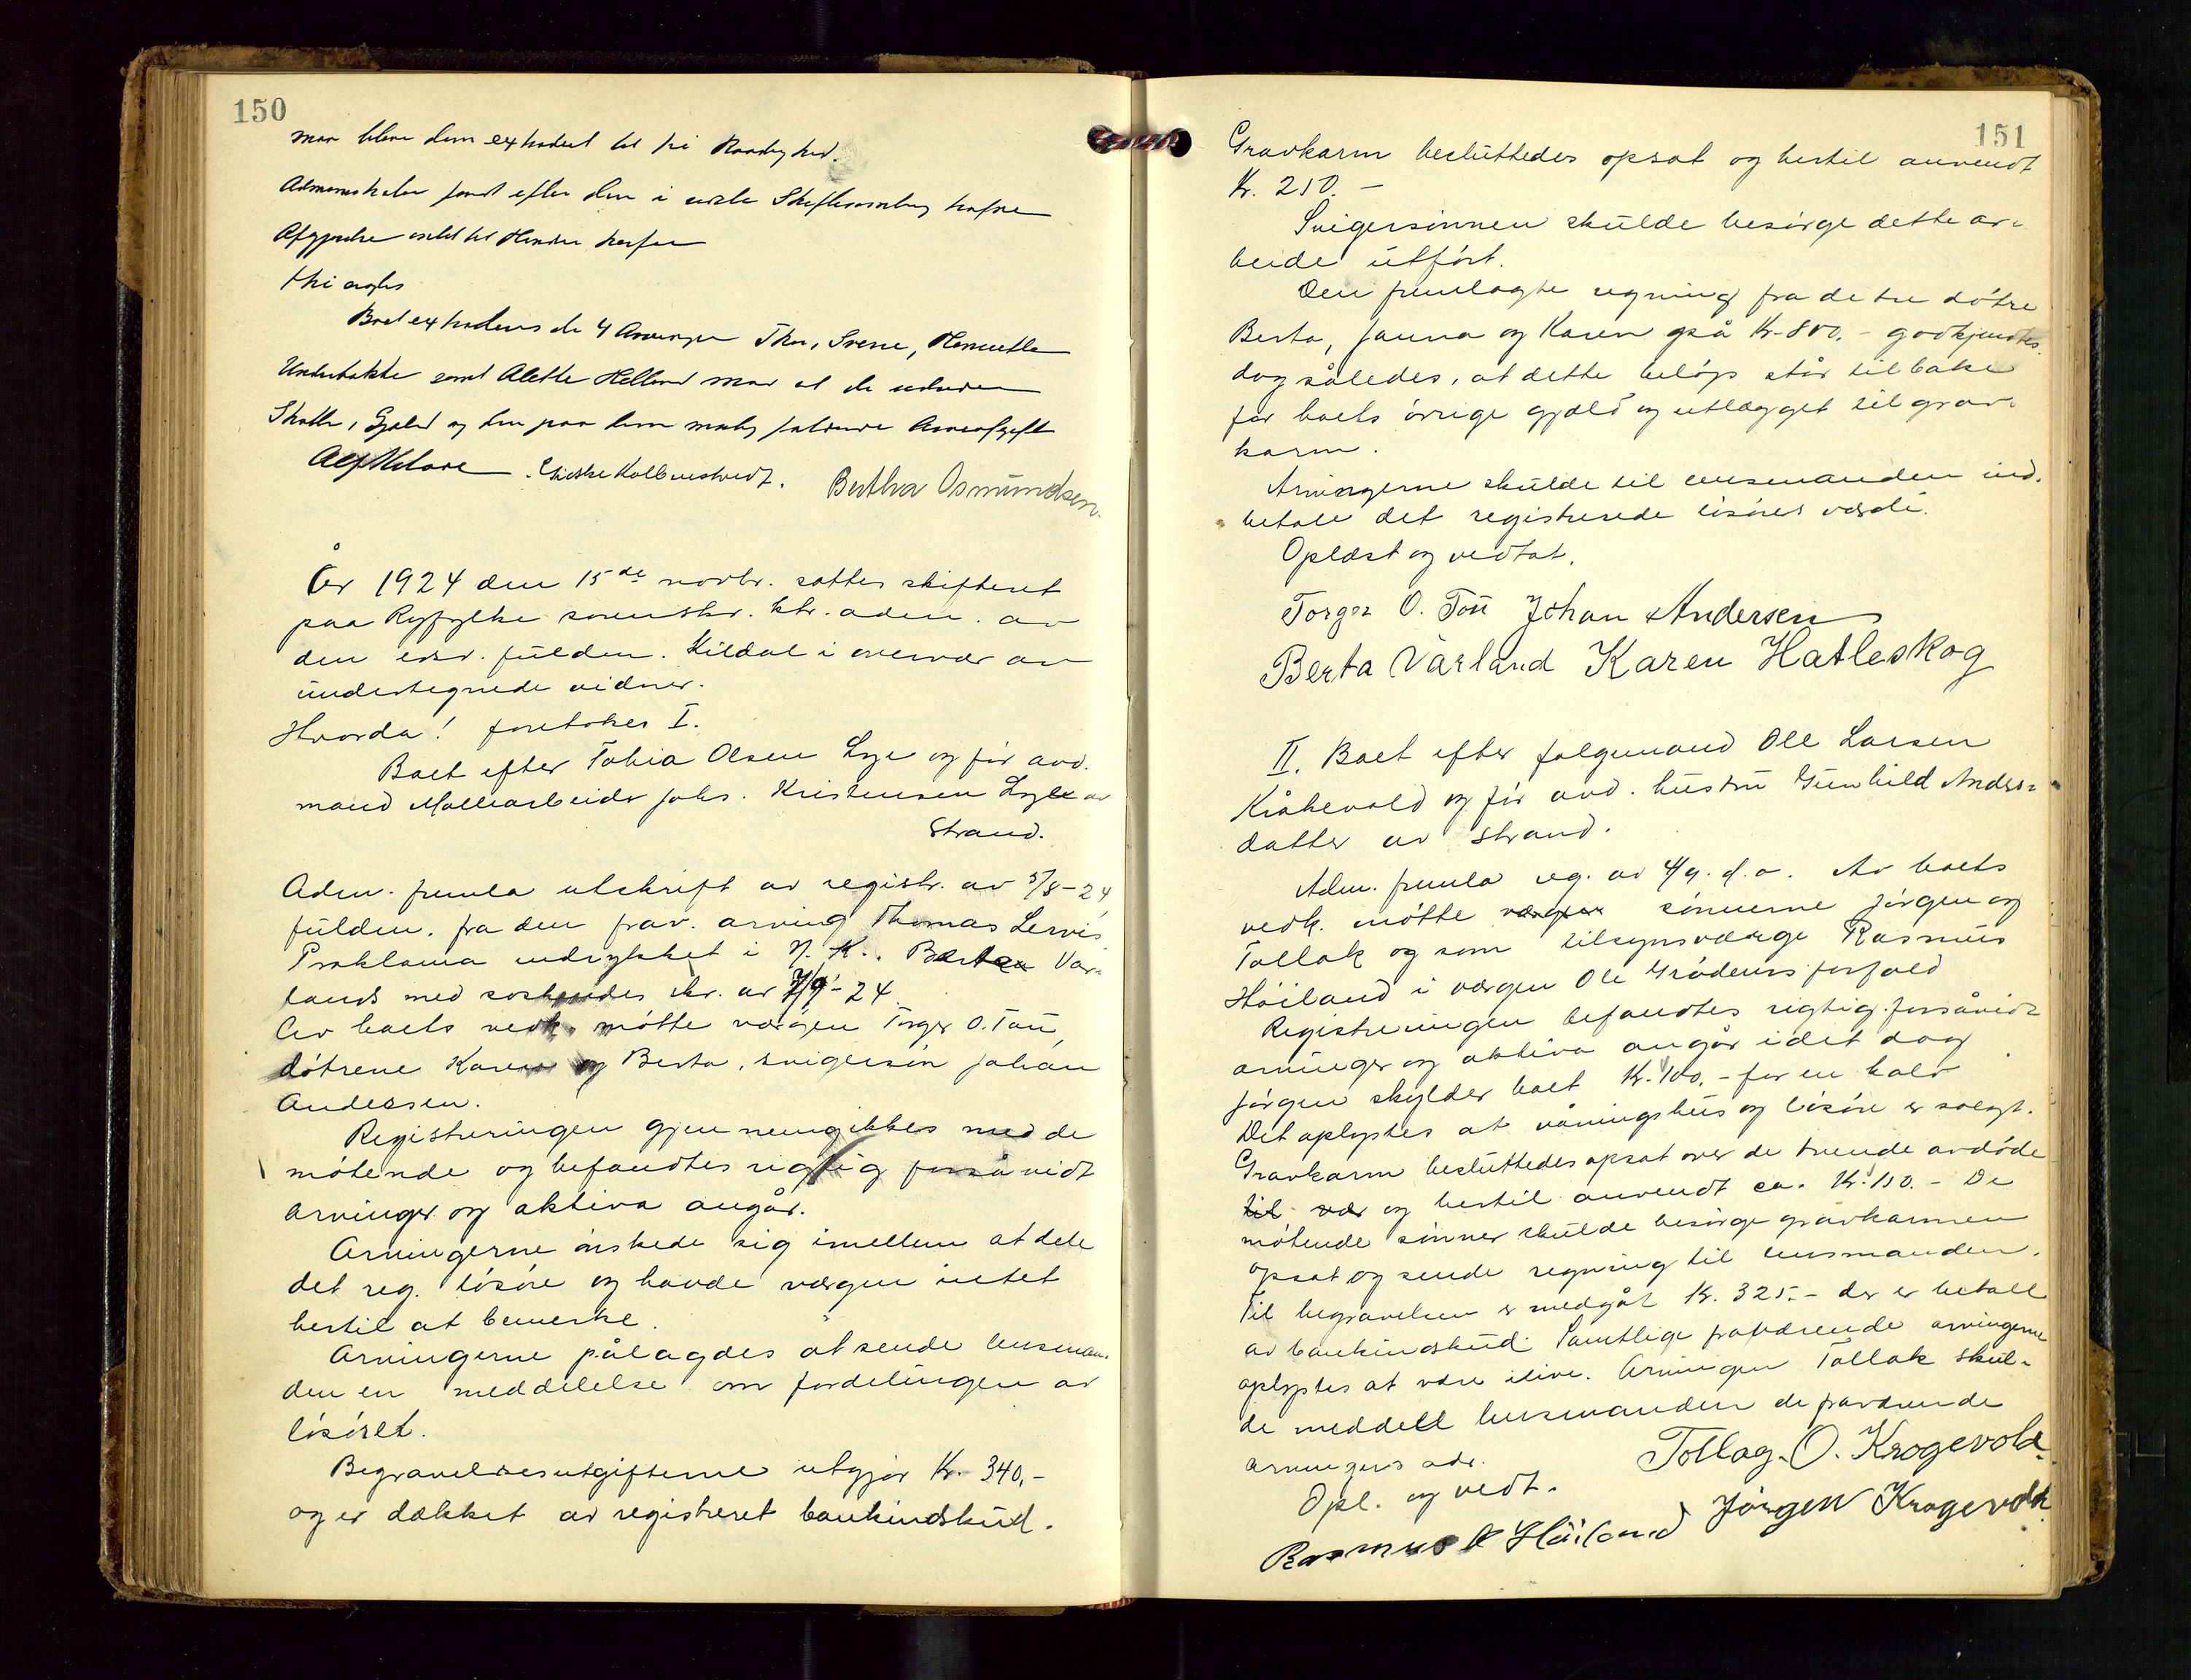 150
maa blive dem extraderet til fri Raadighed.
Administrator fandt efter den i sidste Skiftesamling trufne
Afgjørelse intet til Hinder herfor
thi agtes
Boet extraderes de 4 Arvinger Thor, Sverre, Henriette
Underbakke samt Alette Helland mod at de udreder
Skatte, Gjæld og den paa dem muligt faldende Arveafgift
Alf Klove. Kolbenstvedt. Bertha Osmundsen.
År 1924 den 15de novbr. sattes skifteret
paa Ryfylke sorenskr. ktr. adm. av
den edsv. fuldm. Kildal i overvær av
undertegnede vidner.
Hvorda! foretokes I.
Boet efter Tobia Olsen Lye og før avd.
mand Møllearbeider Johs. Kristensen Lye av
Strand.
Adm. fremla utskrift av registr. av 5/8-24
fuldm. fra den frav. arving Thomas Lervis
Proklama indrykket i N. K.. Berta Var-
lands med søskendes skr. av 7/9-24
Av boets vedk. møtte værgen Torger O. Tou
døtrene Karen og Berta, svigersøn Johan
Andersen.
Registreringen gjennemgikkes med de
møtende og befandtes rigtig forsåvidt
arvinger og aktiva angår.
Arvingerne ønskede sig imellem at dele
det reg. løsøre og havde værgen intet
hertil at bemerke.
Arvingerne pålagdes at sende lensman-
den en meddelelse om fordelingen av
løsøret.
Begravelsesutgifterne utgjør Kr. 340,-
og er dækket av registreret bankindskud.
151
Gravkarm besluttedes opsat og hertil anvendt
Kr. 250.-
Svigersønnen skulde besørge dette ar-
beide utført.
Den fremlagte regning fra de tre døtre
Berta, Janna og Karen på Kr. 800,- godkjendtes.
dog således, at dette beløp står tilbake
for boets øvrige gjæld og utlægget til grav-
karm.
Arvingerne skulde til lensmanden ind-
betale det registrerede løsøres værdi.
Oplæst og vedtat.
Torger O. Tou Johan Andersen
Berta Varland Karen Hatleskog
II. Boet efter følgemand Ole Larsen
Kråkevold og før avd. hustru Gunhild Anders-
datter av Strand.
Adm. fremla reg. av 4/9. d.a. Av boets
vedk. møtte værgen sønnerne Jørgen og
Tollak og som tilsynsværge Rasmus
Høiland i værgen Ole Grødems forfald
Registreringen befandtes rigtig forsåvidt
arvinger og aktiva angår idet dog
Jørgen skylder boet Kr. 100.- for en kalv
Det oplystes at våningshus og løsøre er solgt.
Gravkarm besluttedes opsat over de tvende avdøde
til vær og hertil anvendt ca. Kr. 150.- De
møtende sønner skulde besørge gravkarmen
opsat og sende regning til lensmanden.
Til begravelsen er medgåt Kr. 325.- der er betalt
av bankindskud. Samtlige fraværende arvingerne
oplystes at være ilive. Arvingen Tollak skul-
de meddele lensmanden de fraværende
arvingers adr.
Opl. og vedt.
Tollag. O. Krogevold.
Rasmus Høiland Jørgen Krogevold